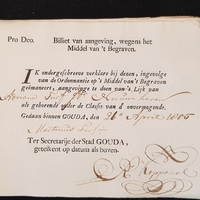 Pro Deo.
Billiet van aangeving, wegens het
Middel van 't Begraven.
IK ondergeschreeve verklare bij deezen, ingevolge
van de Ordonnantie op 't Middel van 't Begraven
geëmaneert, aangevinge te doen van 't Lijk van
als gehoorende onder de Classis van d' onvermogende.
Gedaan binnen GOUDA, den 26 April 1805
Ter Secretarije der Stad GOUDA,
geteikent op datum als boven.